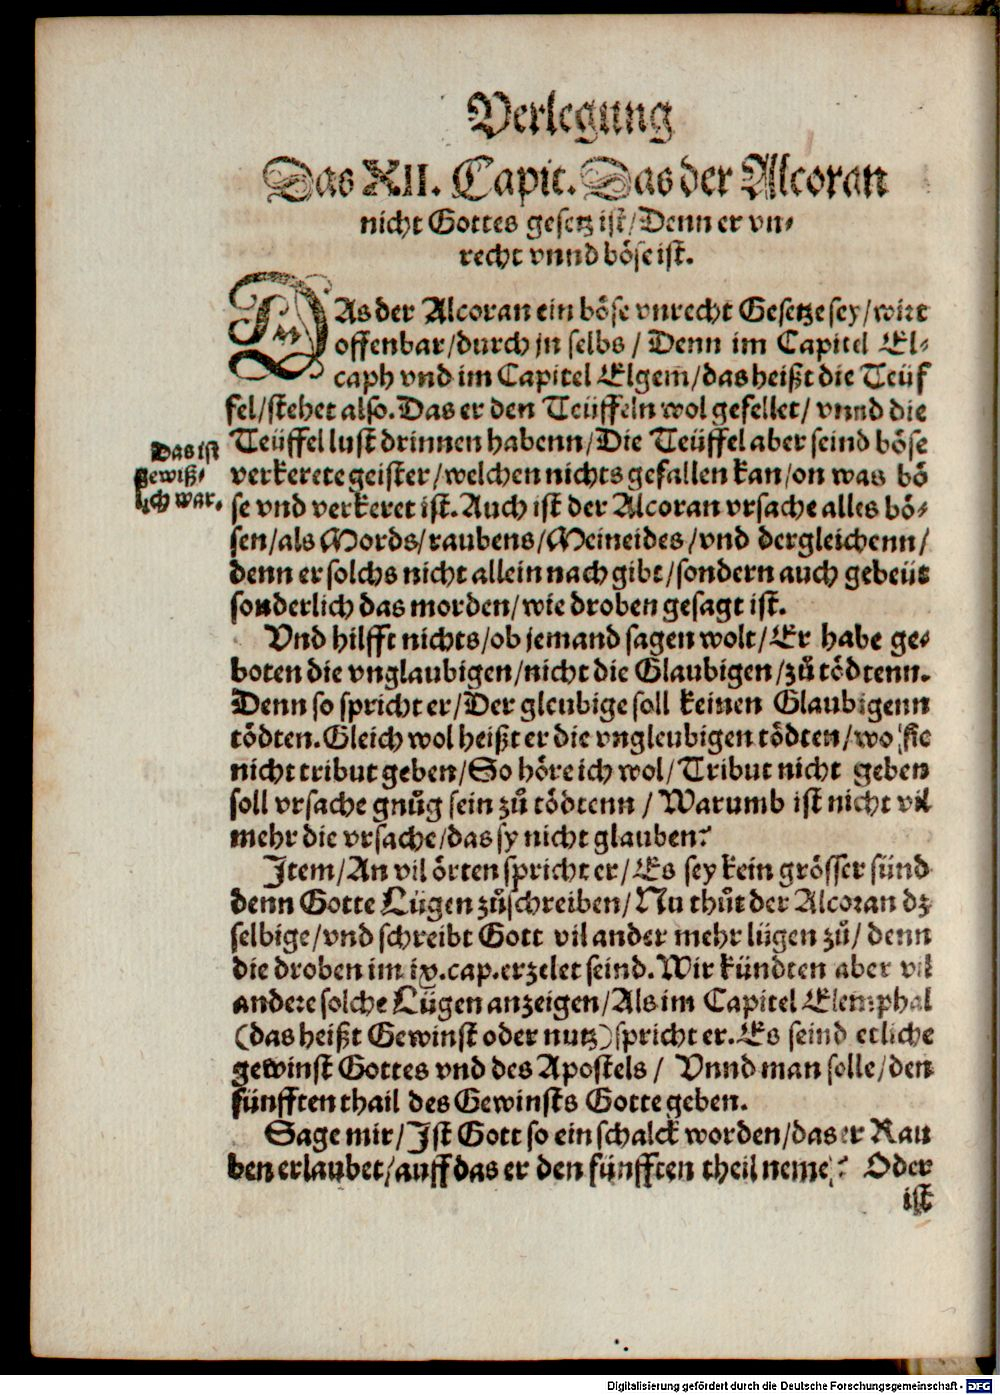 Verlegung
Das XII. Capit. Das der Alcoran
nicht Gottes gesetz ist/ Denn er vn⸗
recht vnnd böse ist.
DAs der Alcoran ein böse vnrecht Gesetze sey/ wirt
offenbar/ durch jn selbs / Denn im Capitel El⸗
caph vnd im Capitel Elgem̃/ das heißt die Teüf
fel/ stehet also. Das er den Teüffeln wol gefellet/ vnnd die
Teüffel lust drinnen habenn/ Die Teüffel aber seind böse
verkerete geister/ welchen nichts gefallen kan/ on was bö
se vnd verkeret ist. Auch ist der Alcoran vrsache alles bö⸗
sen/ als Mords/ raubens/ Meineides/ vnd dergleichenn/
denn er solchs nicht allein nach gibt/ sondern auch gebeüt
sonderlich das morden/ wie droben gesagt ist.
Das ist
gewiß⸗
lich war.
Vnd hilfft nichts/ ob jemand sagen wolt/ Er habe ge⸗
boten die vnglaubigen/ nicht die Glaubigen/ zů tödtenn.
Denn so spricht er/ Der gleubige soll keinen Glaubigenn
tödten. Gleich wol heißt er die vngleubigen tödten/ wo sie
nicht tribut geben/ So höre ich wol/ Tribut nicht geben
soll vrsache gnůg sein zů tödtenn / Warumb ist nicht vil
mehr die vrsache/ das sy nicht glauben?
Item/ An vil örten spricht er/ Es sey kein grösser sünd
denn Gotte Lügen zůschreiben/ Nu thůt der Alcoran dz
selbige/ vnd schreibt Gott vil ander mehr lügen zů/ denn
die droben im ix. cap. erzelet seind. Wir kündten aber vil
andere solche Lügen anzeigen/ Als im Capitel Elemphal
(das heißt Gewinst oder nutz) spricht er. Es seind etliche
gewinst Gottes vnd des Apostels / Vnnd man solle/ den
fünfften thail des Gewinsts Gotte geben.
Sage mir/ Ist Gott so ein schalck worden/ das er Rau
ben erlaubet/ auff das er den fünfften theil neme? Oder
ist
Digitalisierung gefördert durch die Deutsche Forschungsgemeinschaft - DFG